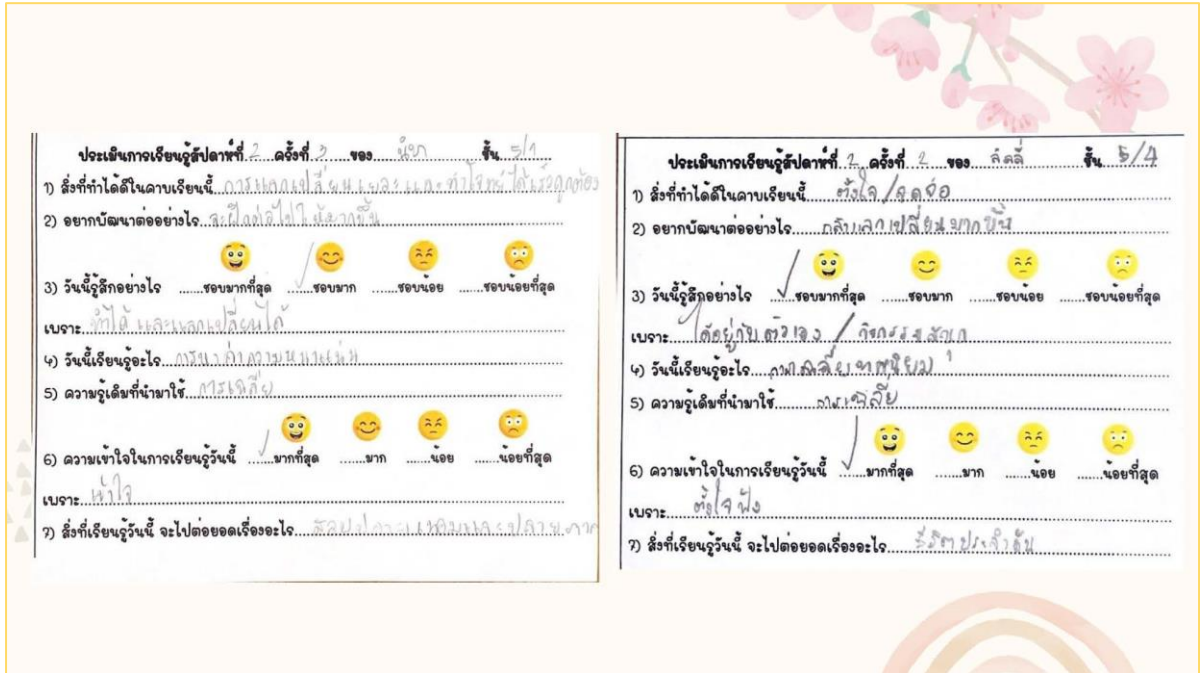 ประเมินการเรียนรู้สัปดาห์ที่ 2 ครั้งที่ 3 ของ ชั้น 5/1
1) สิ่งที่ทำได้ดีในคาบเรียนนี้ การแลกเปลี่ยน และทำโจทย์ได้ ถูกต้อง
2) อยากพัฒนาต่ออย่างไร จะฝึกต่อไปให้มากขึ้น
3) วันนี้รู้สึกอย่างไร ......ชอบมากที่สุด ../..ชอบมาก ......ชอบน้อย ......ชอบน้อยที่สุด
เพราะ ทำได้ และแลกเปลี่ยนได้
4) วันนี้เรียนรู้อะไร การหาค่าความหนาแน่น
5) ความรู้เดิมที่นำมาใช้ การเฉลี่ย
6) ความเข้าใจในการเรียนรู้วันนี้ ../..มากที่สุด ......มาก ......น้อย ......น้อยที่สุด
เพราะ เข้าใจ
7) สิ่งที่เรียนรู้วันนี้ จะไปต่อยอดเรื่องอะไร
ประเมินการเรียนรู้สัปดาห์ที่ 2 ครั้งที่ 2 ของ ชั้น 5/4
1) สิ่งที่ทำได้ดีในคาบเรียนนี้ ตั้งใจ / จดจ่อ
2) อยากพัฒนาต่ออย่างไร แลกเปลี่ยนมากขึ้น
3) วันนี้รู้สึกอย่างไร ../..ชอบมากที่สุด ......ชอบมาก ......ชอบน้อย ......ชอบน้อยที่สุด
เพราะ ได้อยู่กับตัวเอง / กิจกรรมสนุก
4) วันนี้เรียนรู้อะไร
5) ความรู้เดิมที่นำมาใช้ การเฉลี่ย
6) ความเข้าใจในการเรียนรู้วันนี้ ../..มากที่สุด ......มาก ......น้อย ......น้อยที่สุด
เพราะ ตั้งใจฟัง
7) สิ่งที่เรียนรู้วันนี้ จะไปต่อยอดเรื่องอะไร